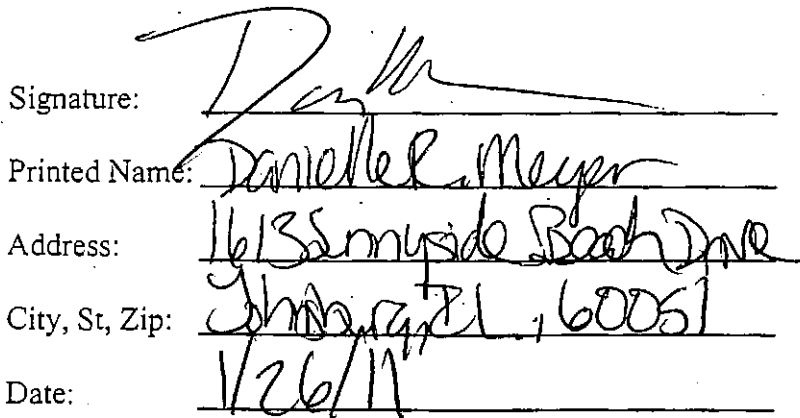 Signature:
Printed Name: Danielle R. Meyer
Address: 1613 Sunnyside Beach Drive
City, St, Zip: Johnsburg, IL, 60051
Date: 1/26/11